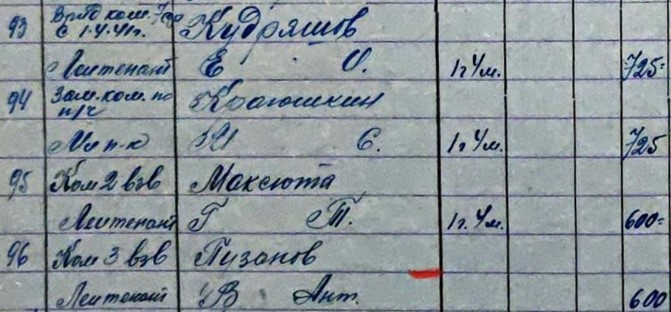 93 ВрИД ком. 7
с 1.4.41г. Кудряшов
Лейтенант Е О. 1г 4м. 725=
94 Зам. ком. по Колюшкин
п/ч
Мл п-к М С. 1г 4м. 725
95 Ком 2 взв Максюта
Лейтенант Г Т. 1г. 4м. 600=
96 Ком 3 взв Пузанов
Лейтенант В Ант. 600